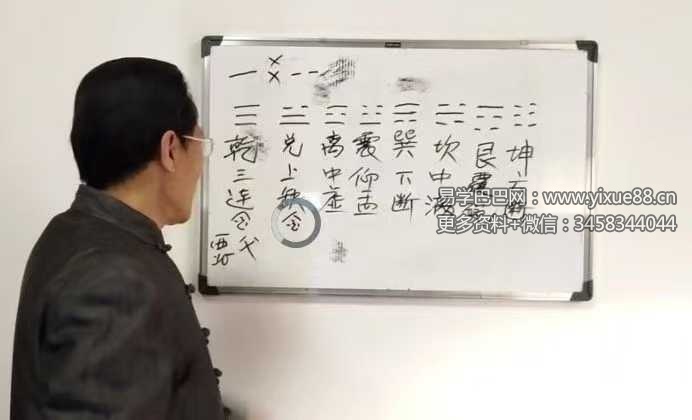 乾三连金父
西北
兑上缺金
离中虚
震仰盂
巽下断
坎中满
艮
坤
易学巴巴网：www.yixue88.cn
更多资料+微信：3458344044